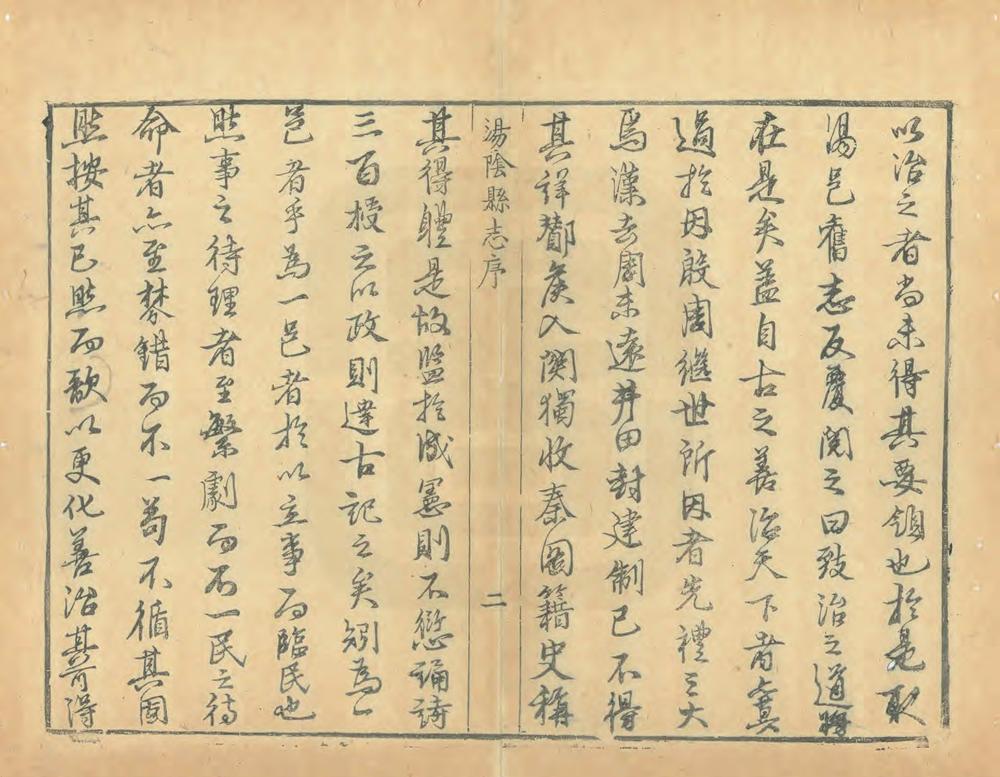 以治之者尚未得其要領也於是取
湯邑舊志反覆閱之曰致治之道
在是矣蓋自古之善治天下者莫
過於因殷周繼世所因者先禮三大
焉漢去周未遠井田封建制已不得
其詳酇侯入關獨收秦圖籍史稱
湯陰縣志序
二
其得體是故監於成憲則不愆誦詩
三百授之以政則達古記之矣矧為一
邑者乎為一邑者於以立事而臨民也
然事之待理者至繁劇而不一民之待
命者亦至棼錯而不一苟不循其固
然按其已然而歌以更化善治其可得